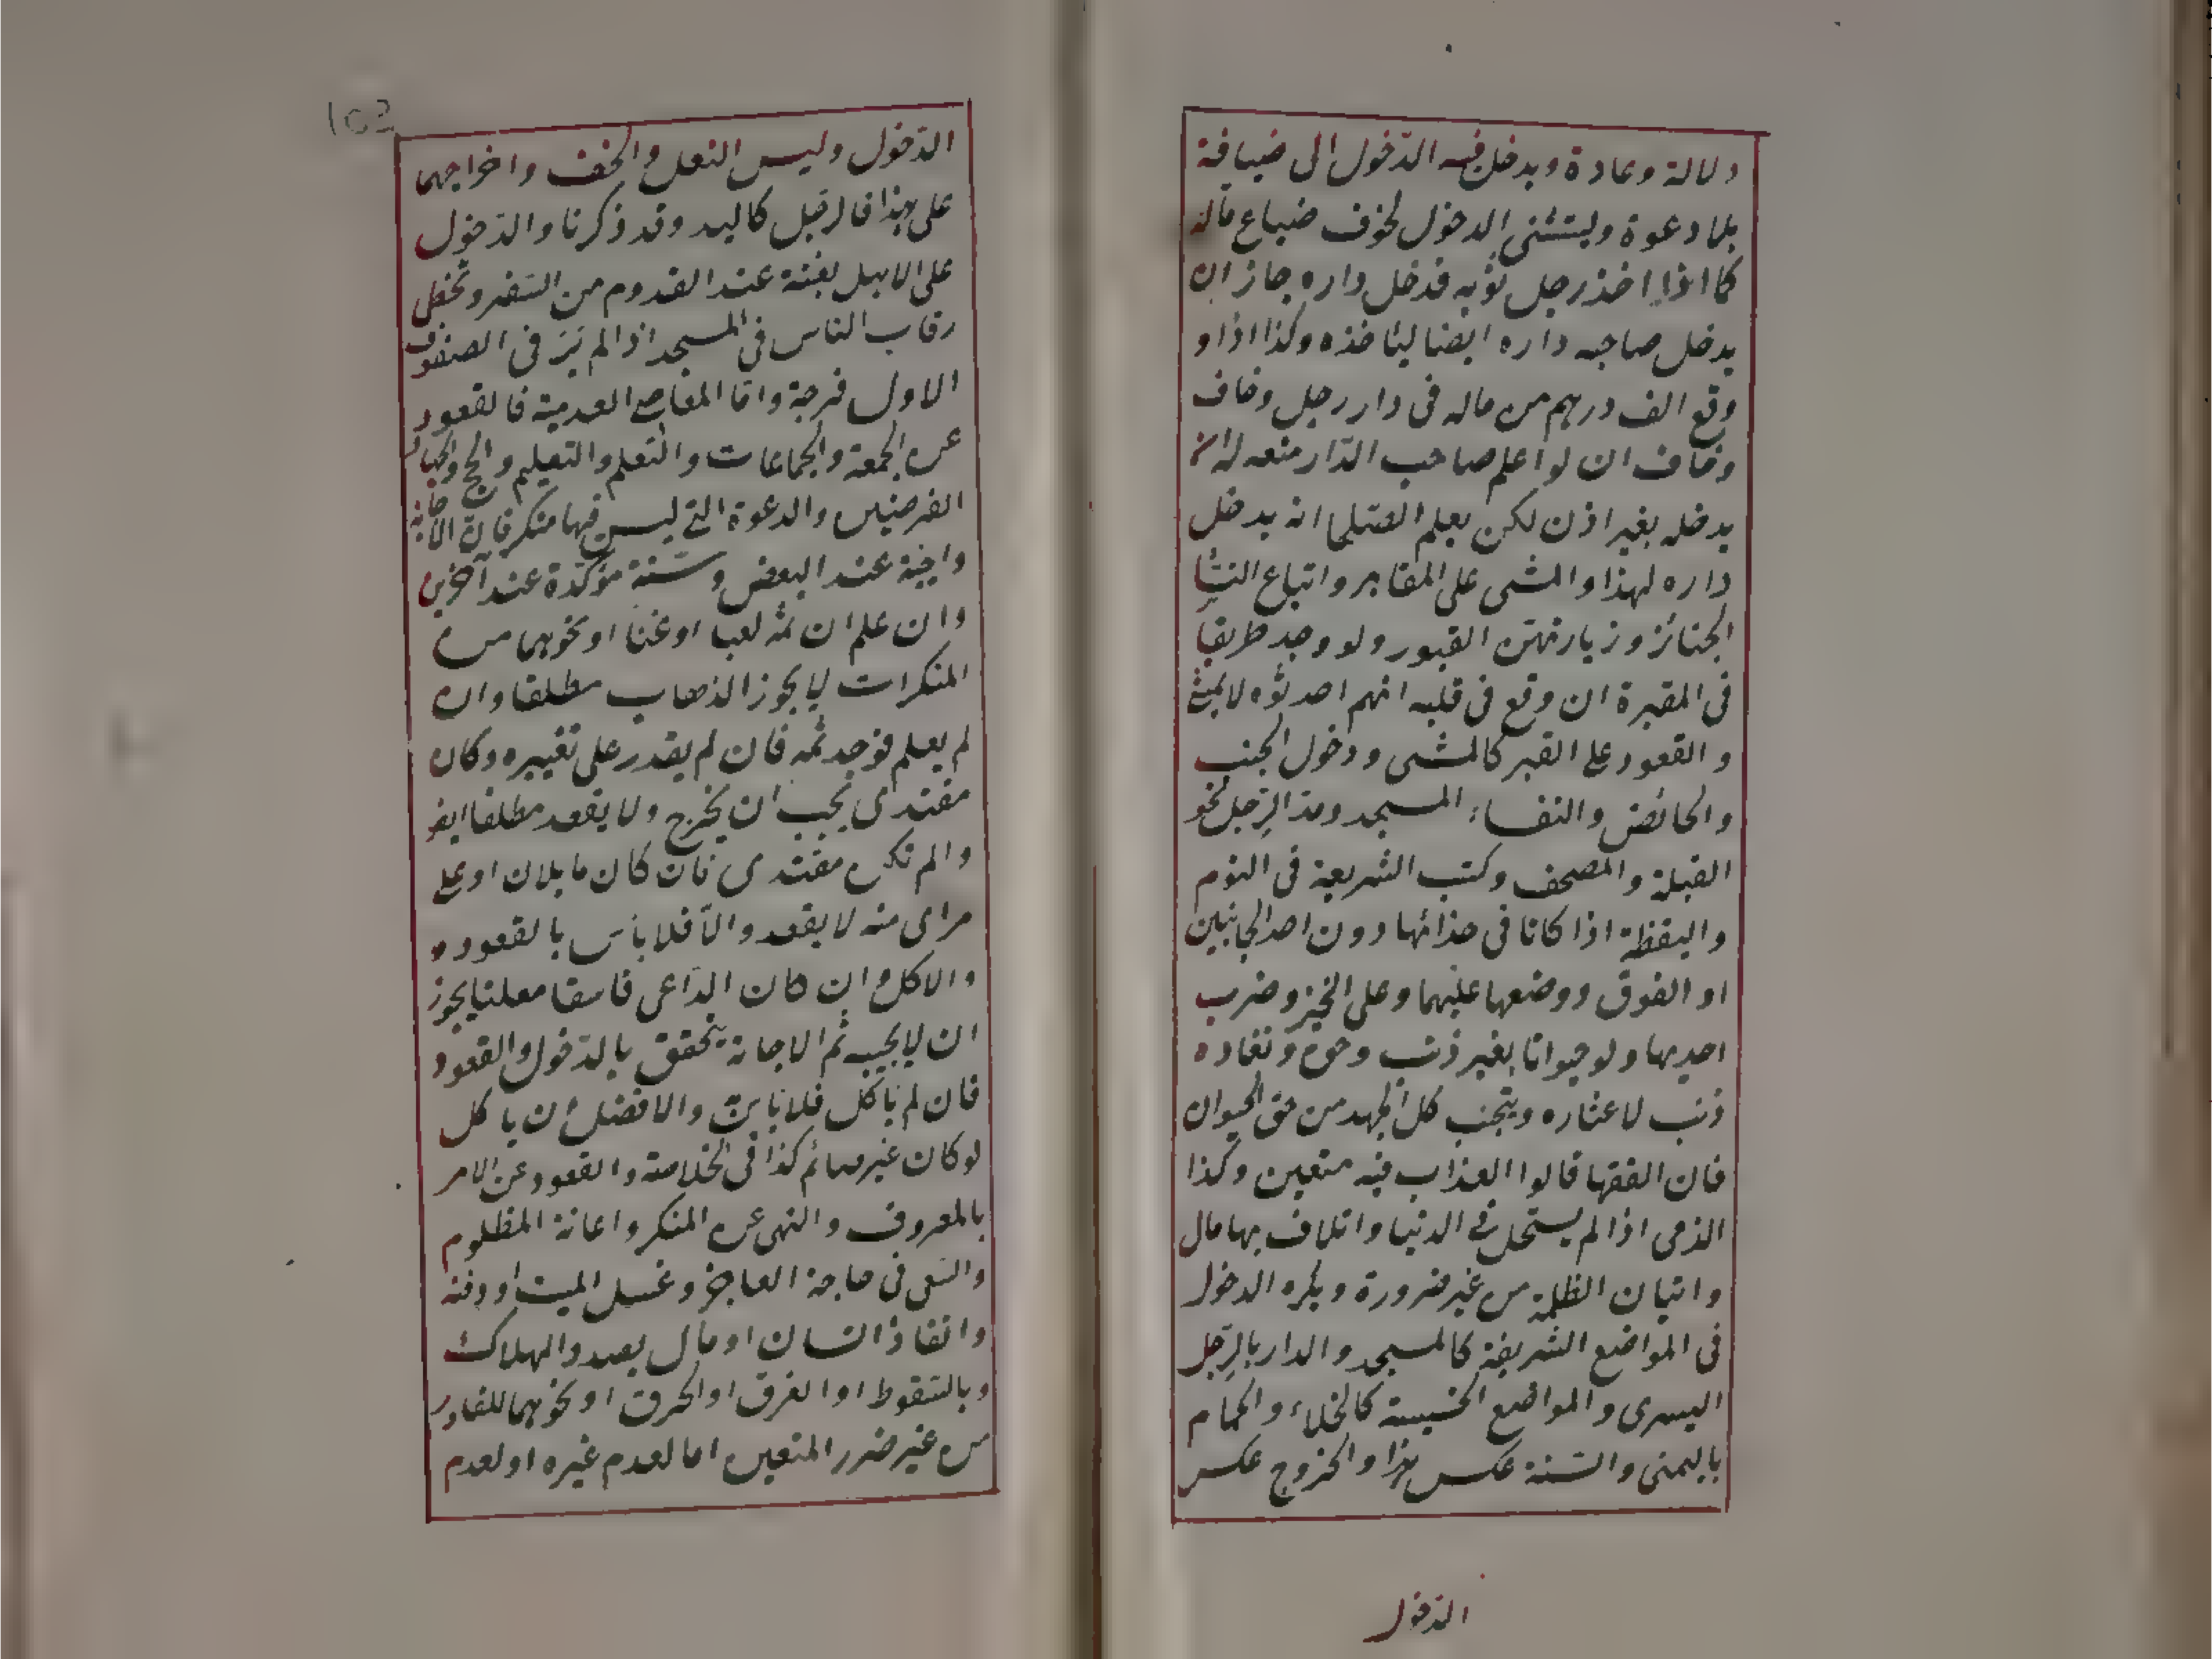 دلالة وعادة ويدخل فيه الدّخول الى ضيافة
بلا دعوة ويستثنى الدخول لخوف ضياع ماله
كما اذا اخذ رجل ثوبه فدخل داره جاز ان
يدخل صاحبه داره ايضا ليأخذه وكذا اذا و
وقع الف درهم من ماله فى دار رجل وخاف
وخاف ان لو اعلم صاحب الدّار منعه له ان
يدخله بغير اذن لكن يعلم الصلحا انه يدخل
داره لهذا والمشى على المقابر واتباع النسا
الجنائز وزيارتهن القبور ولو وجد طريقا
فى المقبرة ان وقع فى قلبه انهم احدثوه لا يمشى
والقعود على القبر كالمشى ودخول الجنب
والحائض والنفساء المسجد ومدّ الرّجل نحو
القبلة والمصحف وكتب الشريعة فى النوم
واليقظة اذا كانا فى حذائها دون احد الجانبين
او الفوق ووضعها عليهما وعلى الخبز وضرب
احد بها ولو حيوانا بغير ذنب وحق ونفاده
ذنب لا عثاره ويتجنب كل الجهد من حق الحيوان
فان الفقها قالوا العذاب فيه متعين وكذا
الذمى اذا لم يستحل فى الدنيا واتلاف بها مال
واتيان الظلمة من غير ضرورة ويكره الدخول
فى المواضع الشريفة كالمسجد والدار بالرّجل
اليسرى والمواضع الخسيسة كالخلاء والحمام
باليمنى والسّنة عكس هذا والخروج عكس
الدّخول
102
الدّخول ولبس النعل والخف واخراجهما
على هذا فالرجل كاليد وقد ذكرنا والدّخول
على الاهل بغتة عند القدوم من السّفر وتخطى
رقاب الناس فى المسجد اذا لم يَرَ فى الصفوف
الاول فرجة وامّا المعاصى العدمية فالقعود
عن الجمعة والجماعات والتعلم والتعليم والحج والجهاد
الفرضين والدعوة التى ليس فيها منكر فان الاجابة
واجبة عند البعض وسنّة مؤكّدة عند آخرين
وان علم ان ثمه لعبا او غنا او نحوهما من
المنكرات لا يجوز الذهاب مطلقا وان
لم يعلم فوجد ثمه فان لم يقدر على تغييره وكان
مقتدى يجب ان يخرج ولا يقعد مطلقا ايضا
والم تكن مقتدى فان كان مايلان او على
مراى منه لا يقعد والّا فلا بأس بالقعود و
والاكل وان كان الدّاعى فاسقا معلنا يجوز
ان لا يجيبه ثم الاجابة يتحقق بالدّخول والقعود
فان لم ياكل فلا بأس والافضل ان ياكل
لو كان غير صائم كذا فى الخلاصة والقعود عن الامر
بالمعروف والنهى عن المنكر واعانة المظلوم
والسّعى فى حاجة العاجز وغسل الميت ودفنه
وانقاذ انسان او مال بصدد الهلاك
وبالسّقوط او الغرق او الحرق او نحوهما للقادر
من غير ضرر المتعين اما لعدم غيره او لعدم